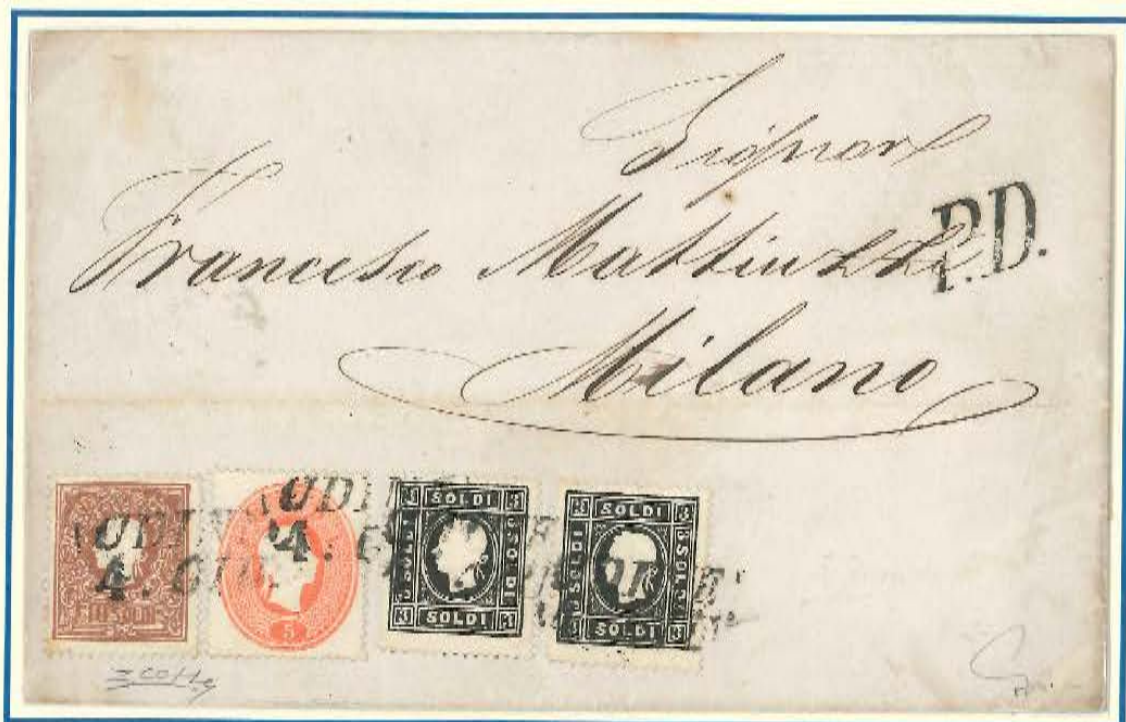 Signor
Francesco Mattiuzzi
P.D.
Milano
UDINE
4. GIU
UDINE
4. G
10 SOLDI
5
3 SOLDI 3
SOLDI
SOLDI
3 SOLDI 3
3 SOLDI 3
SOLDI
SOLDI
3 SOLDI 3